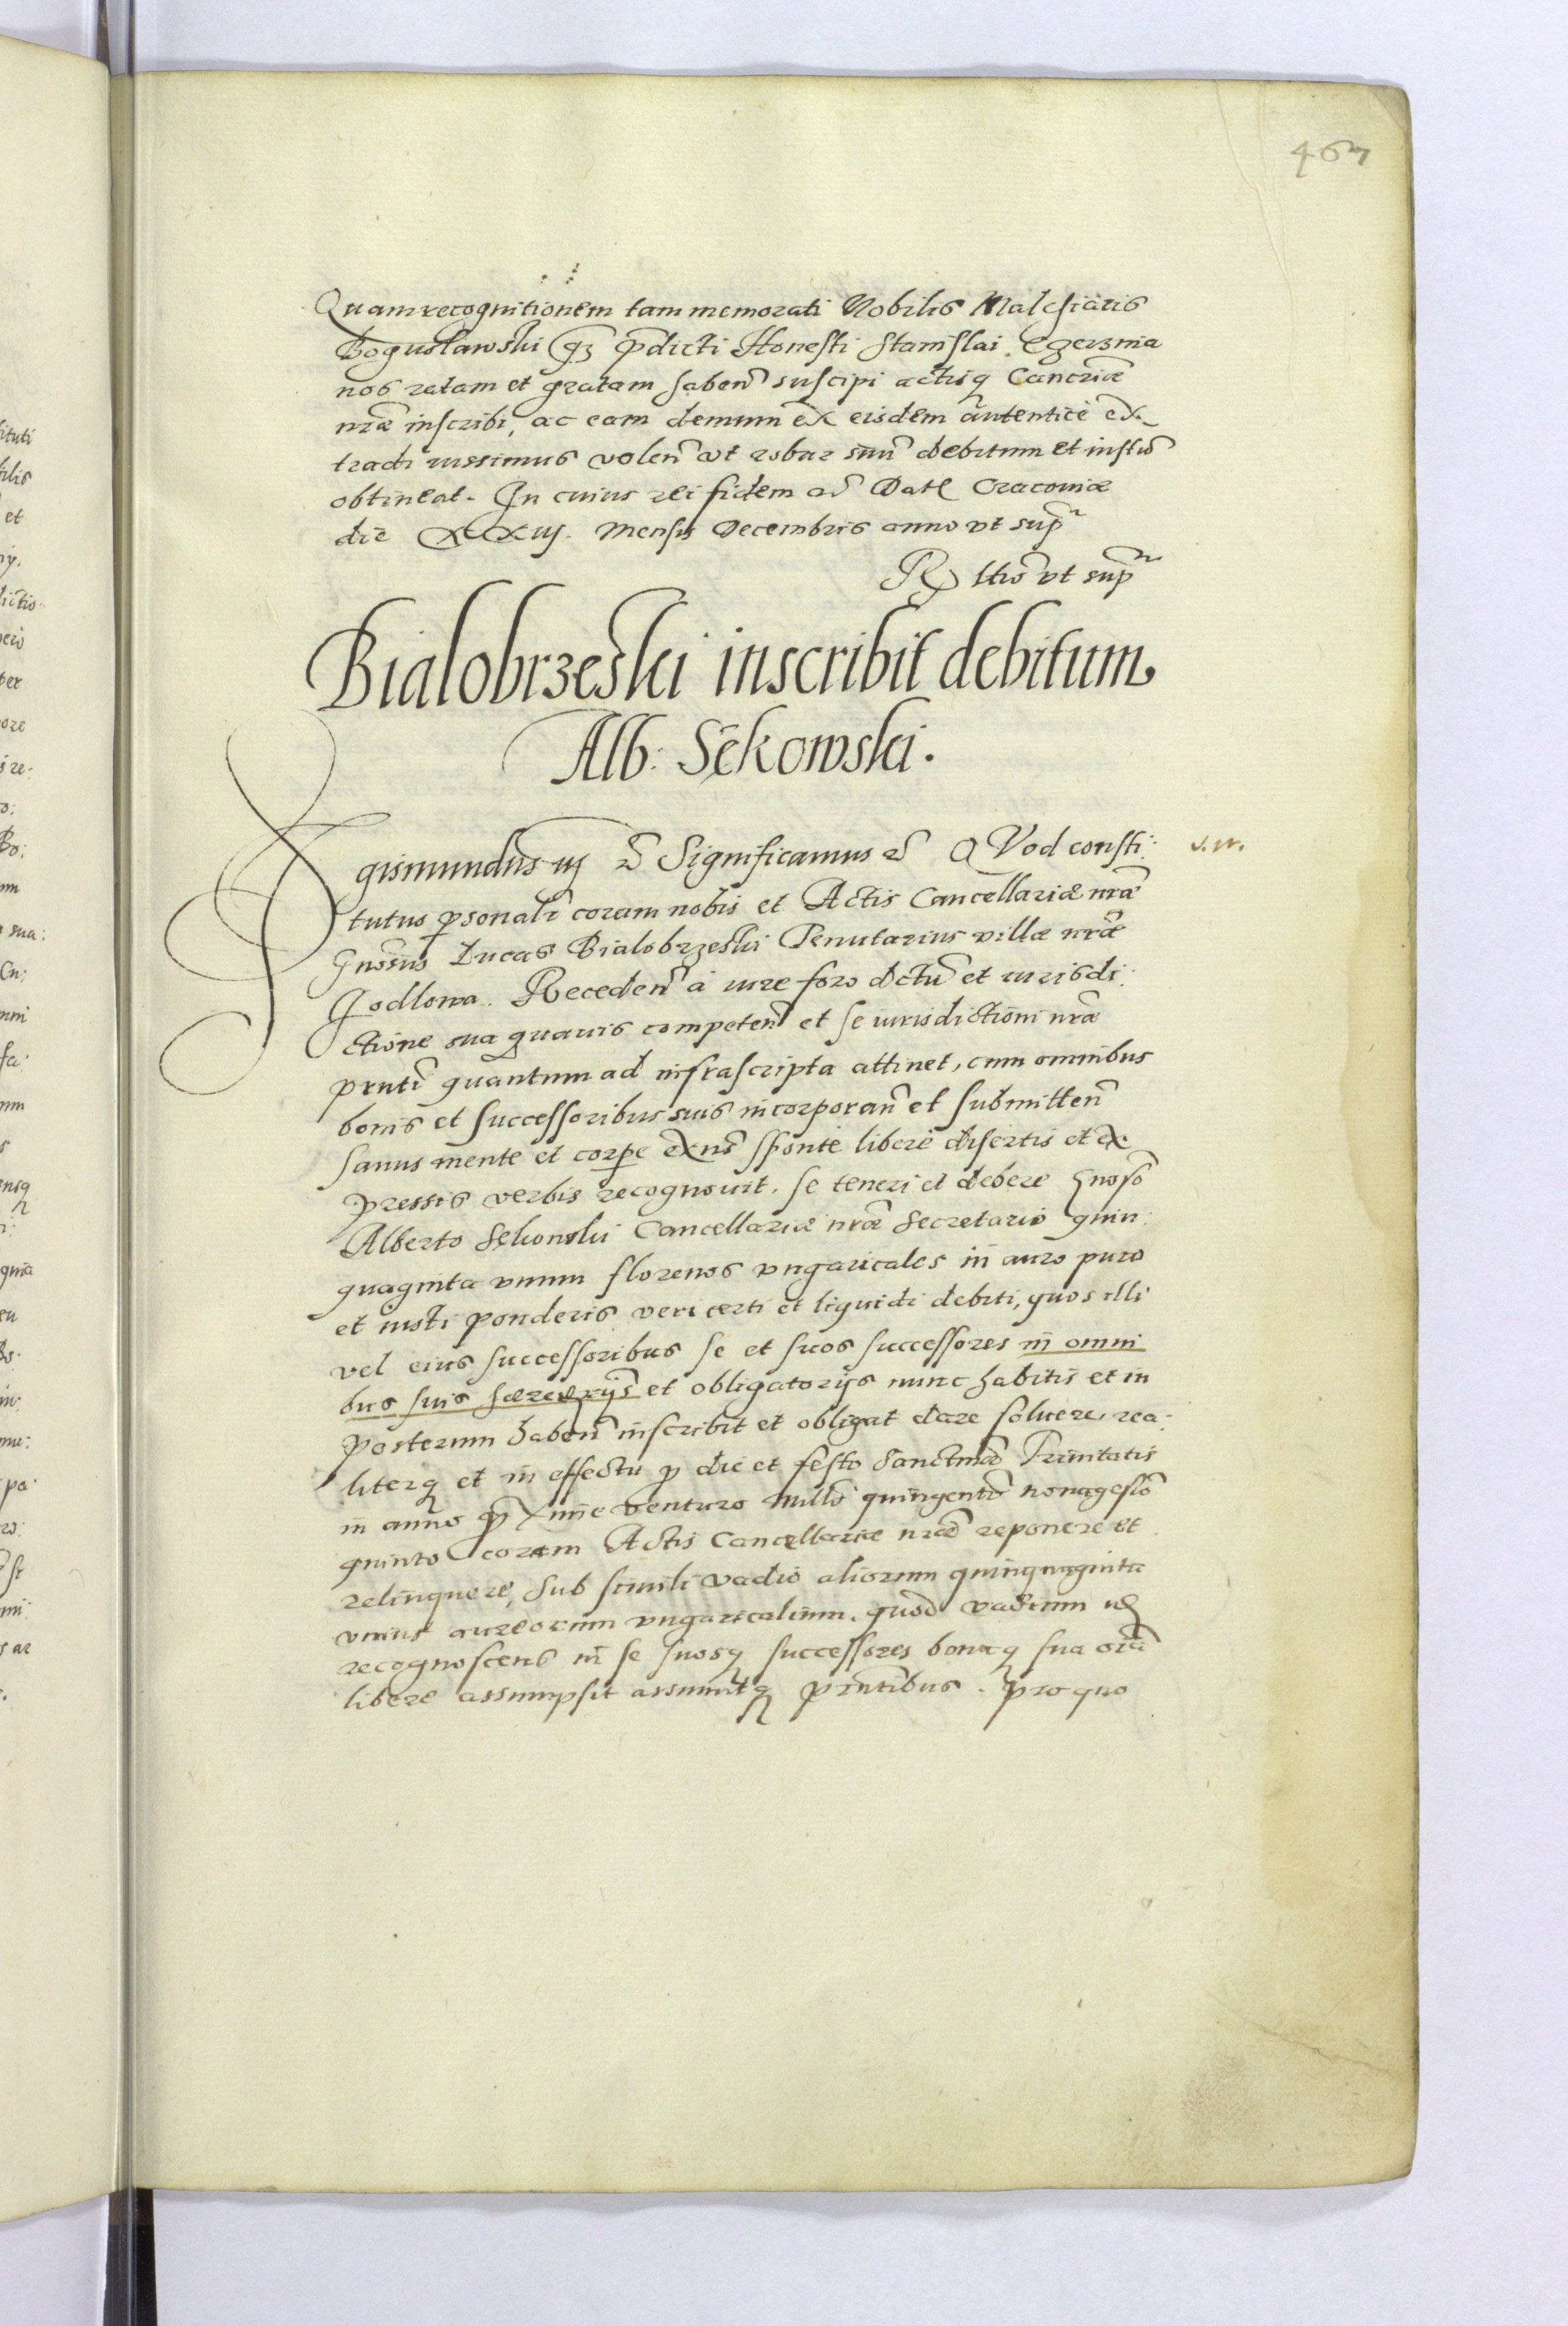 467
Quam recognitionem tam memorati Nobilis Malchiaris
Boguslawski qz prdicti Honesti Stanislai Egerznia
nos ratam et gratam haben suscipi actisq Cancriæ
nræ inscribi, ac eam demum ex eisdem autenticè ex-
tradi iussimus volen vt robur suū debitum et iustū
obtineat. In cuius rei fidem etc Datt Cracoviæ
die XXIIJ. Mensis Decembris anno vt supra
Rtio vt supra
Bialobrzeski inscribit debitum
Alb: Sękowski.
Sigismundus iij etc Significamus etc QVod consti:
tutus psonalr coram nobis et Actis Cancellariæ nræ
Gnosus Lucas Bialobrzeski Tenutarius villæ nræ
Jodlowa. Receden à iure foro dctu et iurisdi:
ctione sua quavis competen et se iurisdictioni nræ
pnti quantum ad infrascripta attinet, cum omnibus
bonis et successoribus suis incorporan et submitten
sanus mente et corpe exns sponte liberè disertis et ex-
pressis verbis recognovit. se teneri et debere Gnoso
Alberto Sękowski Cancellariæ nræ Secretario quin:
quaginta vnum florenos vngaricales in auro puro
et iusti ponderis veri certi et liquidi debiti, quos illi
vel eius successoribus se et suos successores in omni
bus suis et obligatorijs nunc habitis et in
posterum haben inscribit et obligat dare solvere, rea:
literq et in effectu p die et festo Sanctmæ Trinitatis
in anno pxime venturo millo quingento nonagesio
quinto coram Actis Cancellariæ nræ reponere et
relinquere, Sub simili vadio aliorum quinquaginta
vnius aureorum vngaricalium. quod vadium id
recognoscens in se suosq successores bonaq sua oia
libere assumpsit assumitq prntibus. Pro quo